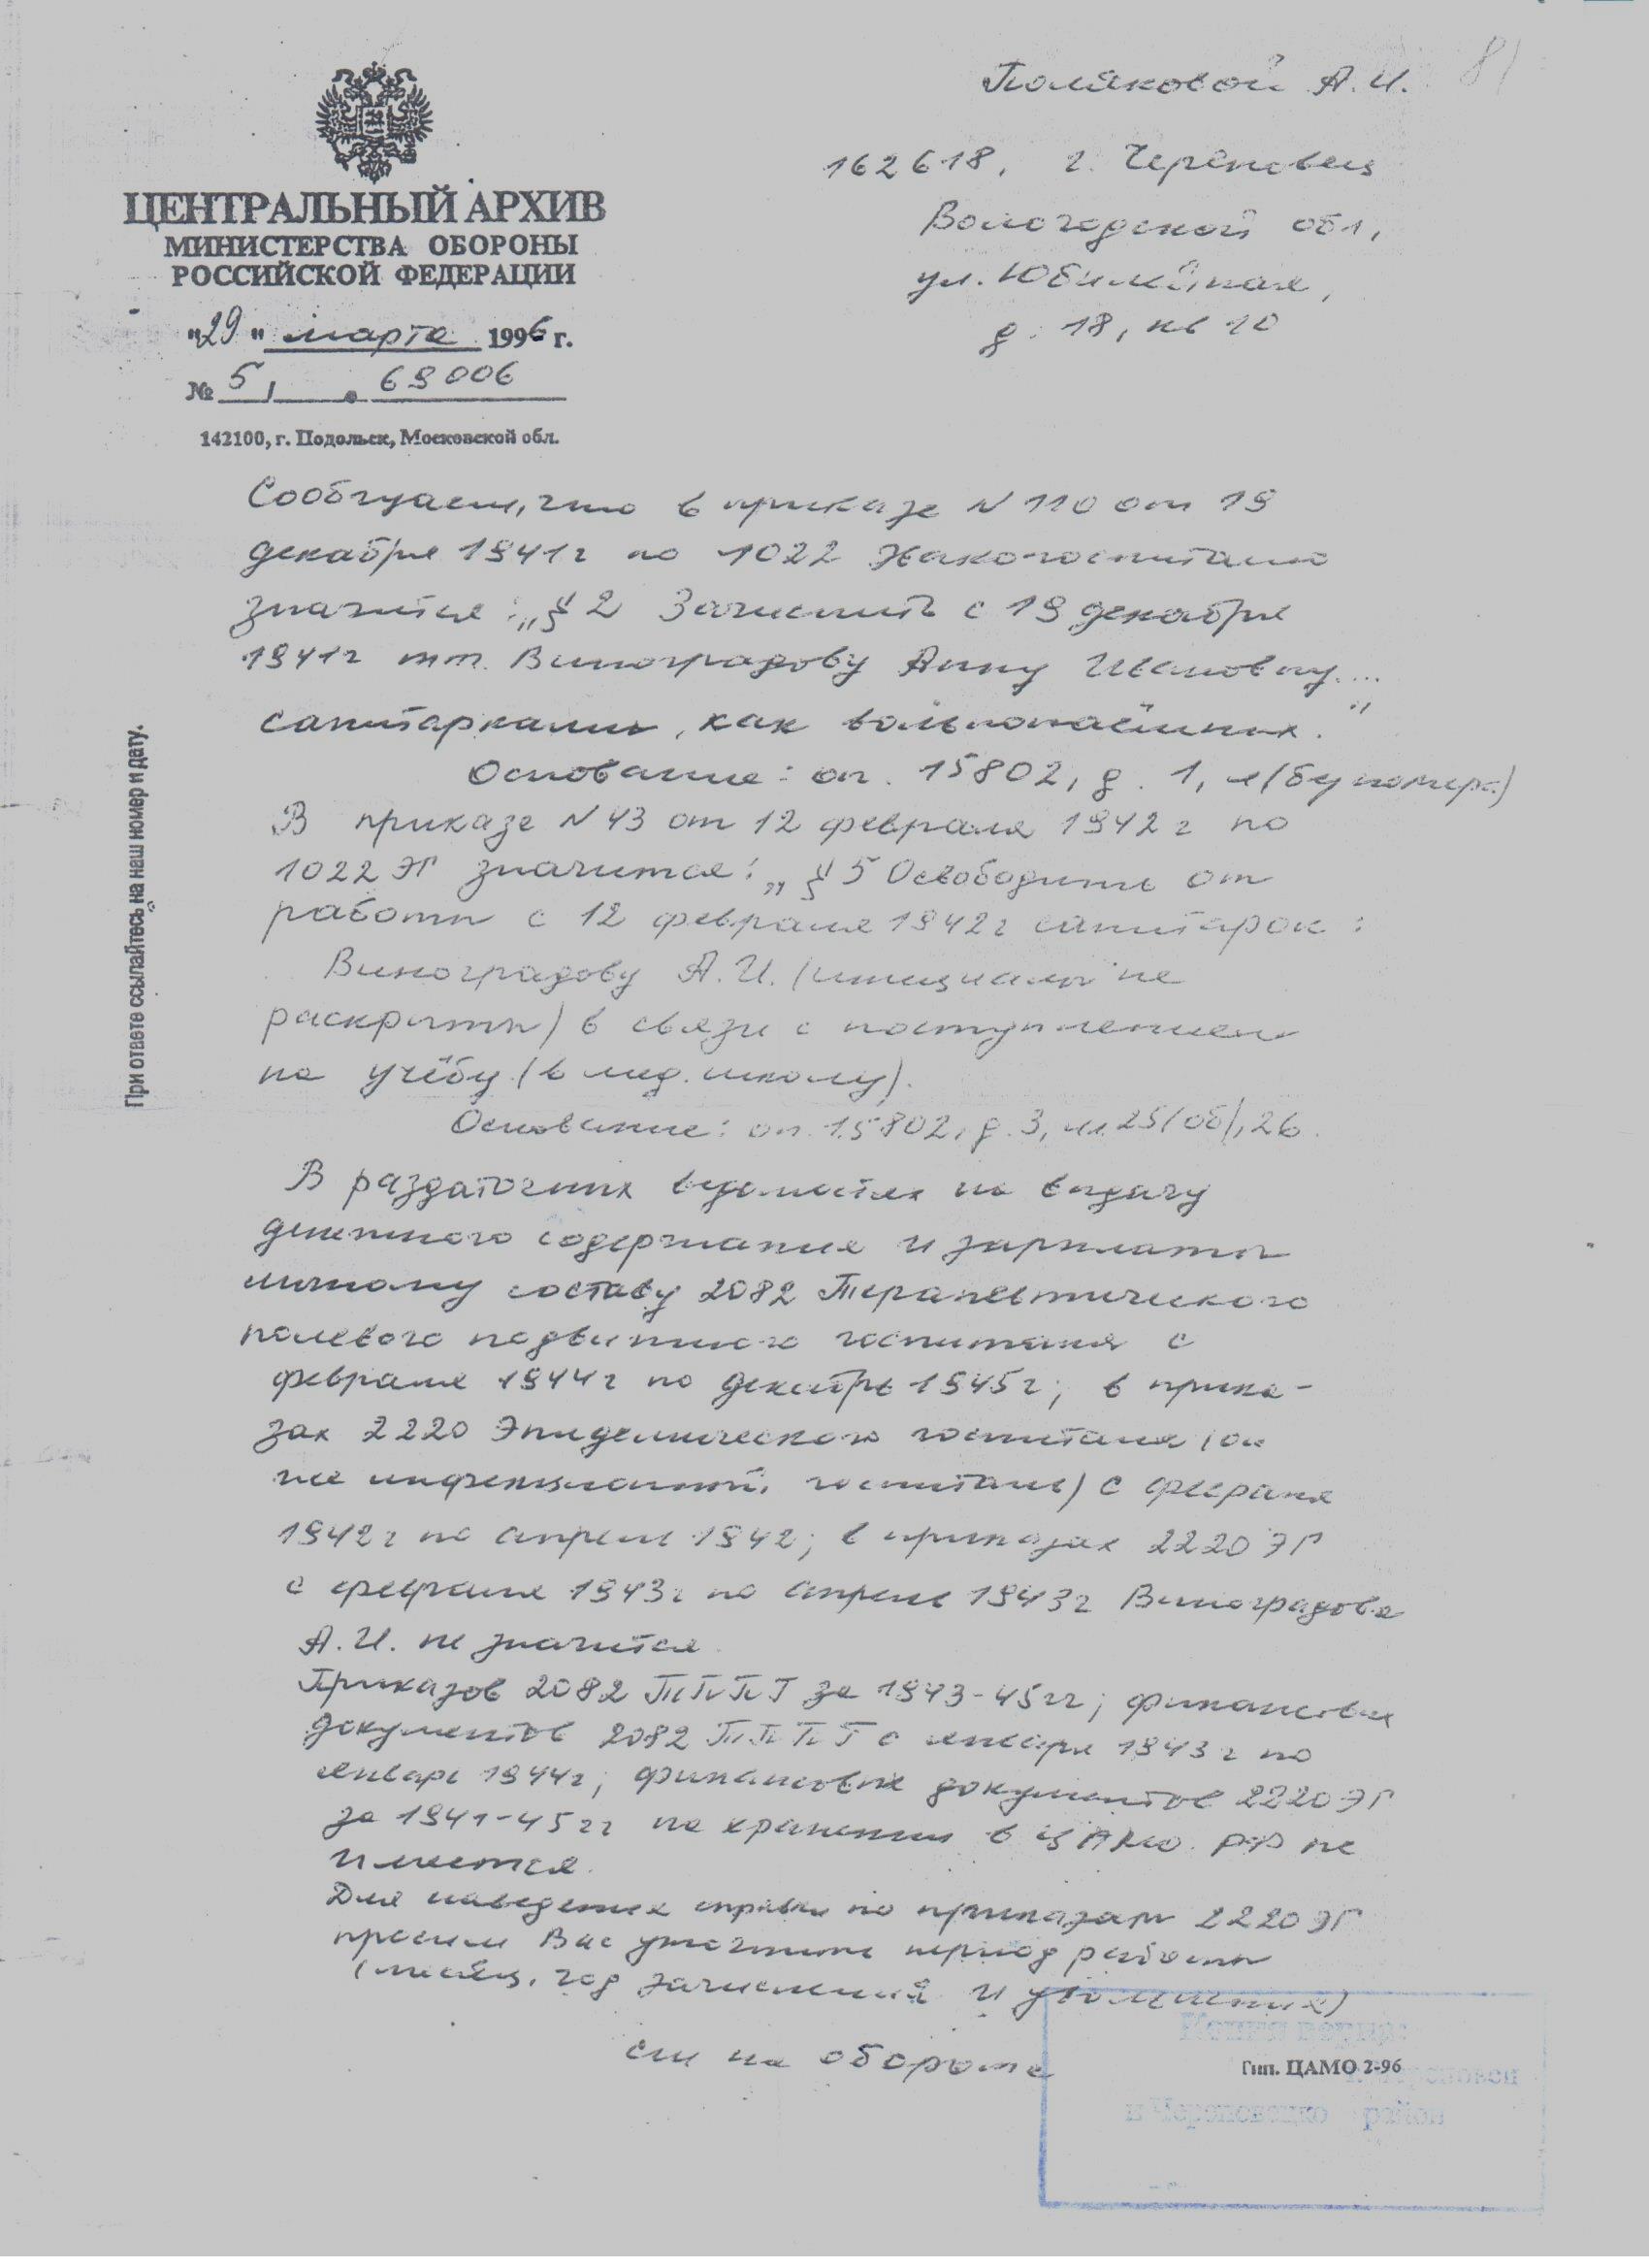 81
Поляковой А.И.
162618, г. Череповец
Вологодской обл,
ул. Юбилейная,
д. 18, кв 10
ЦЕНТРАЛЬНЫЙ АРХИВ
МИНИСТЕРСТВА ОБОРОНЫ
РОССИЙСКОЙ ФЕДЕРАЦИИ
"29" марта 1996 г.
№ 5/ 69006
142100, г. Подольск, Московской обл.
При ответе ссылайтесь на наш номер и дату.
Сообщаем, что в приказе N 110 от 19
декабря 1941г по 1022 Эвакогоспиталю
значится: „§ 2 Зачислить с 19 декабря
1941г т.т. Виноградову Анну Ивановну....
санитарками, как вольнонаёмных."
Основание: оп. 15802, д. 1, л (без номера)
В приказе N 43 от 12 февраля 1942 г по
1022 ЭГ значится: „§ 5 Освободить от
работы с 12 февраля 1942г санитарок:
Виноградову А.И. (инициалы не
раскрыты) в связи с поступлением
на учёбу (в мед. школу).
Основание: оп. 15802, д. 3, лл. 25(об), 26.
В раздаточных ведомостях на выдачу
денежного содержания и зарплаты
личному составу 2082 Терапевтического
полевого подвижного госпиталя с
февраля 1944г по декабрь 1945г; в прика-
зах 2220 Эпидемического госпиталя (он
же инфекционный госпиталь) с февраля
1942г по апрель 1942; в приказах 2220 ЭГ
с февраля 1943г по апрель 1943г Виноградова
А.И. не значится.
Приказов 2082 ТППГ за 1943-45гг; финансовых
документов 2082 ТППГ с января 1943 г по
январь 1944г; финансовых документов 2220 ЭГ
за 1941-45 гг на хранении в ЦАМО РФ не
имеется.
Для наведения справки по приказам 2220 ЭГ
просим Вас уточнить период работы
(месяц, год зачисления и увольнения)
см на обороте
Копия верна:
Тип. ЦАМО 2-96
и Череповецко район